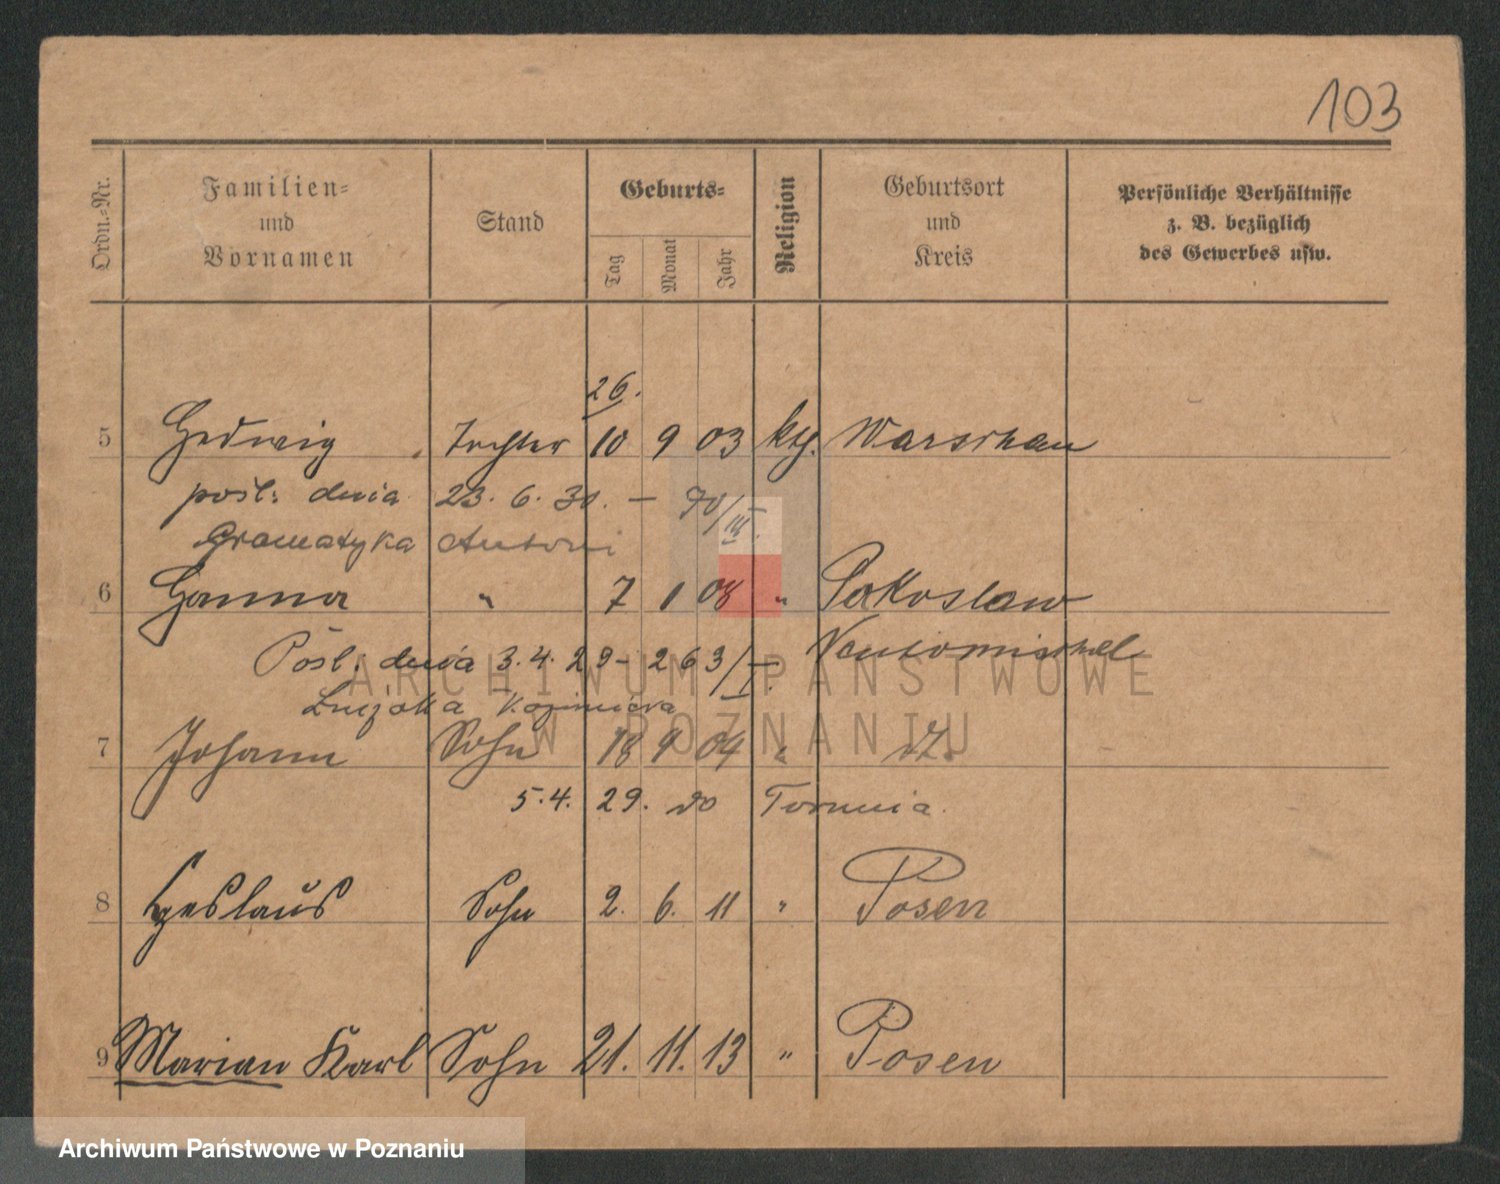 103
Ordn.-Nr. Familien- und Vornamen Stand Geburts- Tag Monat Jahr Religion Geburtsort und Kreis Persönliche Verhältnisse z. B. bezüglich des Gewerbes usw.
26.
5 Hedwig Tochter 10 9 03 kth. Warschau
pośl: dnia 23. 6. 30. – 70/III.
Gramatyka Antoni
6 Hanna " 7 1 08 " Sokoslaw
Pośl: dnia 3. 4. 29 – 263/I. Neutomischel
Kazimierza
7 Johann Sohn 18 9 04 "
5. 4. 29. do Torunia.
8 Czeslaus Sohn 2. 6. 11 " Posen
9 Marian Karl Sohn 21. 11. 13 " Posen
ARCHIWUM PAŃSTWOWE
W POZNANIU
Archiwum Państwowe w Poznaniu